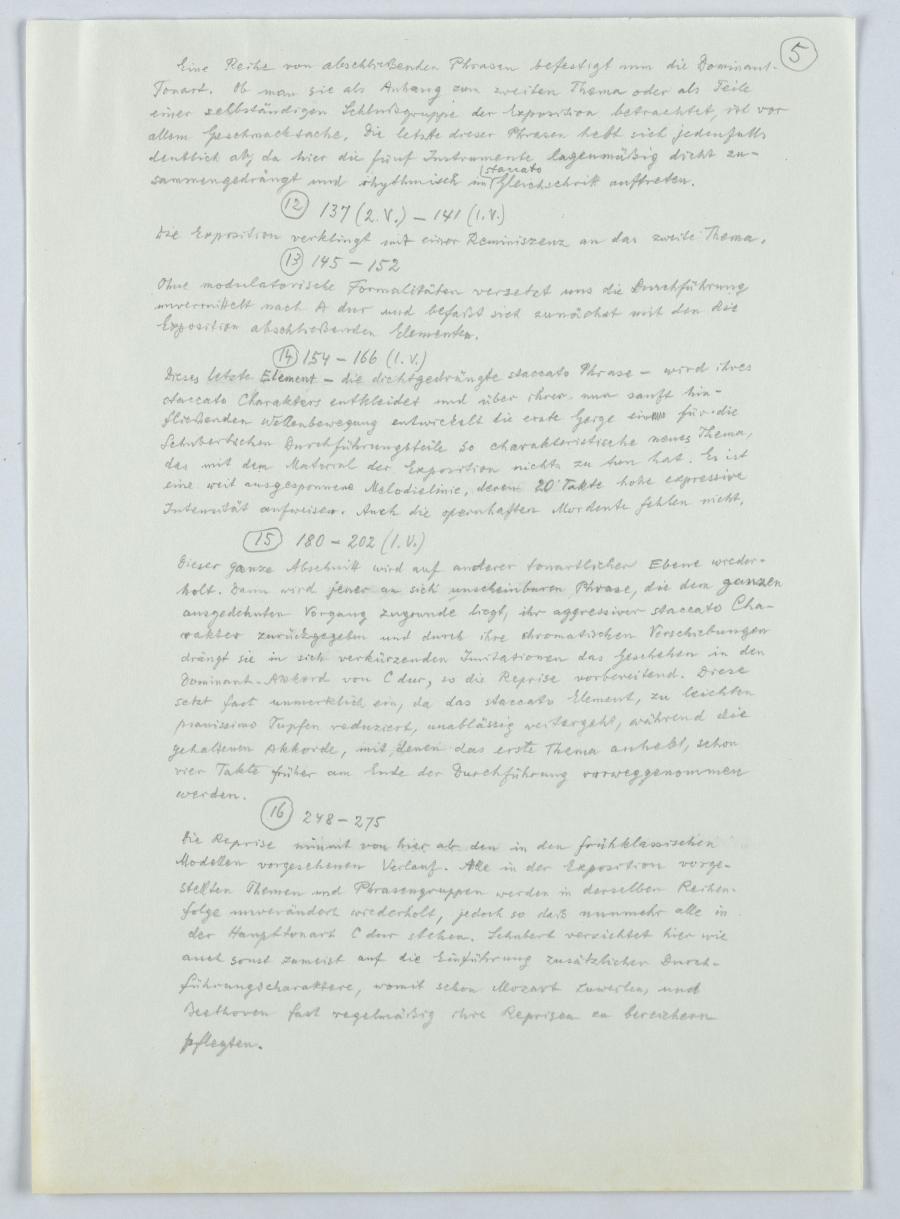 5
Eine Reihe von abschließenden Phrasen befestigt nun die Dominant-
Tonart. Ob man sie als Anhang zum zweiten Thema oder als Teile
einer selbständigen Schlußgruppe der Exposition betrachtet, ist vor
allem Geschmacksache. Die letzte dieser Phrasen hebt sich jedenfalls
deutlich ab, da hier die fünf Instrumente lagenmäßig dicht zu-
staccato
sammengedrängt und rhythmisch im Gleichschritt auftreten.
12 137 (2.V.) – 141 (1.V.)
Die Exposition verklingt mit einer Reminiszenz an das zweite Thema.
13 145 – 152
Ohne modulatorische Formalitäten versetzt uns die Durchführung
unvermittelt nach A dur und befaßt sich zunächst mit den die
Exposition abschließenden Elementen.
14 154 – 166 (1.V.)
Dieses letzte Element – die dichtgedrängte staccato Phrase – wird ihres
staccato Charakters entkleidet und über ihrer nun sanft hin-
fließenden Wellenbewegung entwickelt die erste Geige ein für die
Schubertschen Durchführungsteile so charakteristische neues Thema,
das mit dem Material der Exposition nichts zu tun hat. Es ist
eine weit ausgesponnene Melodielinie, deren 20 Takte hohe expressive
Intensität aufweisen. Auch die opernhaften Mordente fehlen nicht.
15 180 – 202 (1.V.)
Dieser ganze Abschnitt wird auf anderer tonartlicher Ebene wieder-
holt. Dann wird jener an sich unscheinbaren Phrase, die dem ganzen
ausgedehnten Vorgang zugrunde liegt, ihr aggressiver staccato Cha-
rakter zurückgegeben und durch ihre chromatischen Verschiebungen
drängt sie in sich verkürzenden Imitationen das Geschehen in den
Dominant-Akkord von C dur, so die Reprise vorbereitend. Diese
setzt fast unmerklich ein, da das staccato Element, zu leichten
pianissimo Tupfen reduziert, unablässig weitergeht, während die
gehaltenen Akkorde, mit denen das erste Thema anhebt, schon
vier Takte früher am Ende der Durchführung vorweggenommen
werden.
16 248 – 275
Die Reprise nimmt von hier ab den in den frühklassischen
Modellen vorgesehenen Verlauf. Alle in der Exposition vorge-
stellten Themen und Phrasengruppen werden in derselben Reihen-
folge unverändert wiederholt, jedoch so daß nunmehr alle in
der Haupttonart C dur stehen. Schubert verzichtet hier wie
auch sonst zumeist auf die Einführung zusätzlicher Durch-
führungscharaktere, womit schon Mozart zuweilen, und
Beethoven fast regelmäßig ihre Reprisen zu bereichern
pflegten.